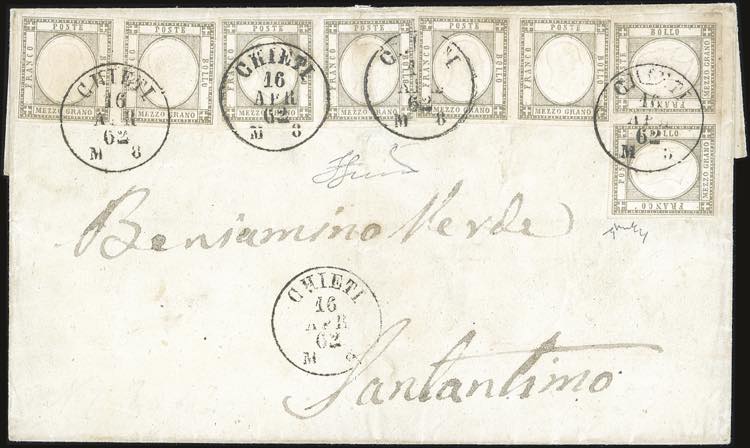 POSTE POSTE POSTE POSTE POSTE POSTE
FRANCO BOLLO FRANCO BOLLO FRANCO BOLLO FRANCO BOLLO FRANCO BOLLO FRANCO BOLLO
MEZZO GRANO MEZZO GRANO MEZZO GRANO MEZZO GRANO MEZZO GRANO MEZZO GRANO
BOLLO
POSTE MEZZO GRANO
FRANCO
BOLLO
POSTE MEZZO GRANO
FRANCO
CHIETI
16
APR
62
M 8
CHIETI
16
APR
62
M 8
CHIETI
16
APR
62
M 8
CHIETI
16
APR
62
M 8
Beniamino Verde
CHIETI
16
APR
62
M 8
Santantimo